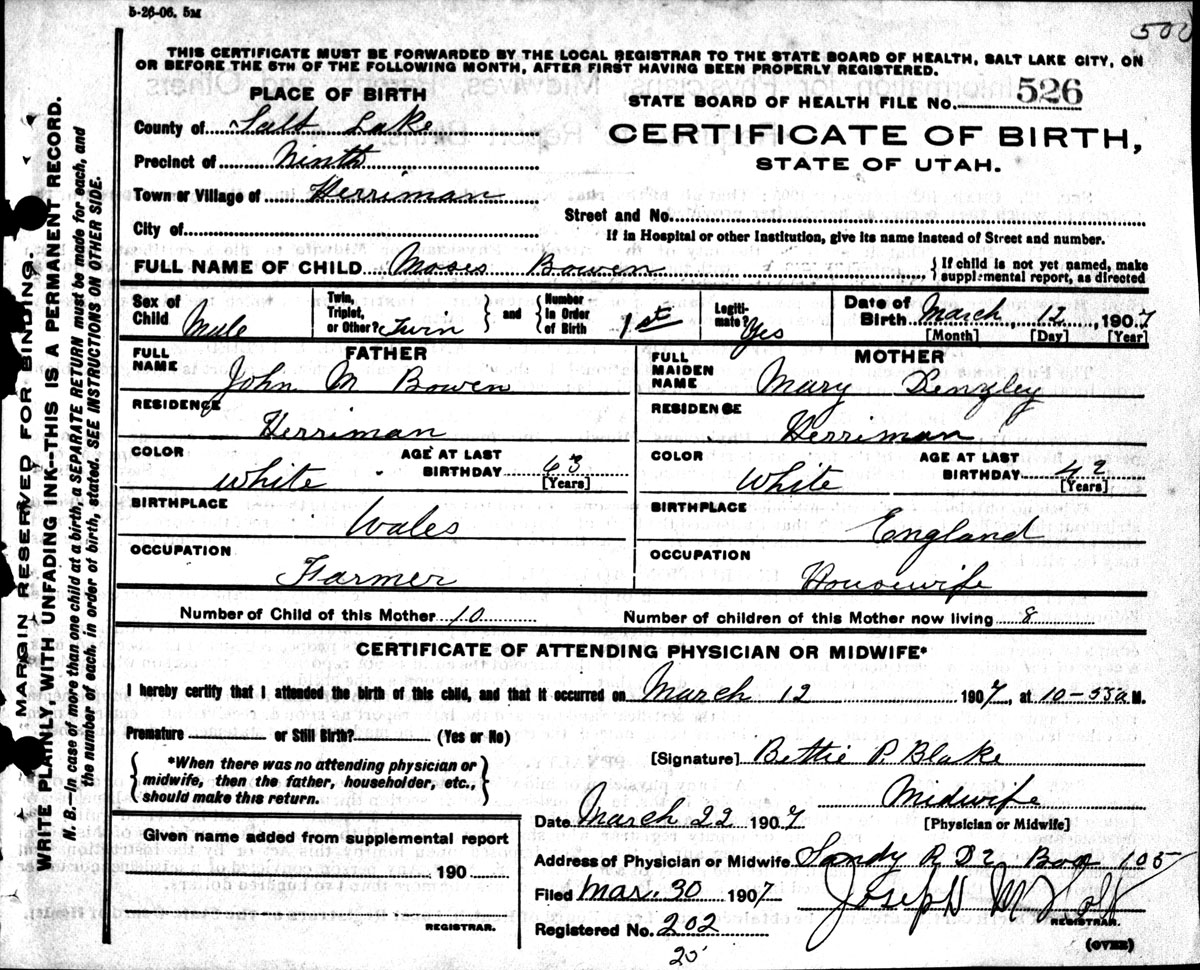 5-26-06. 5M
500
THIS CERTIFICATE MUST BE FORWARDED BY THE LOCAL REGISTRAR TO THE STATE BOARD OF HEALTH, SALT LAKE CITY, ON
OR BEFORE THE 5TH OF THE FOLLOWING MONTH, AFTER FIRST HAVING BEEN PROPERLY REGISTERED.
PLACE OF BIRTH
STATE BOARD OF HEALTH FILE NO. 526
County of Salt Lake
CERTIFICATE OF BIRTH,
Precinct of Ninth
STATE OF UTAH.
Town or Village of Herriman
Street and No.
City of
If in Hospital or other Institution, give its name instead of Street and number.
FULL NAME OF CHILD Moses Bowen
If child is not yet named, make
supplemental report, as directed
Sex of Child Male
Twin, Triplet, or Other? Twin and Number in Order of Birth 1st
Legitimate? Yes
Date of Birth March, 12, 1907
[Month] [Day] [Year]
FATHER
FULL NAME John M Bowen
RESIDENCE Herriman
COLOR White
AGE AT LAST BIRTHDAY 63 [Years]
BIRTHPLACE Wales
OCCUPATION Farmer
MOTHER
FULL MAIDEN NAME Mary
RESIDENCE Herriman
COLOR White
AGE AT LAST BIRTHDAY 42 [Years]
BIRTHPLACE England
OCCUPATION Housewife
Number of Child of this Mother 10
Number of children of this Mother now living 8
CERTIFICATE OF ATTENDING PHYSICIAN OR MIDWIFE*
I hereby certify that I attended the birth of this child, and that it occurred on March 12 1907, at 10-55 a M.
Premature or Still Birth? (Yes or No)
*When there was no attending physician or
midwife, then the father, householder, etc.,
should make this return.
[Signature] Bettie P. Blake
Midwife
[Physician or Midwife]
Date March 22 1907
Given name added from supplemental report
190
REGISTRAR.
Address of Physician or Midwife Sandy R D 2 Box 105
Filed Mar. 30 1907
Joseph M Holt
REGISTRAR.
Registered No. 202
20
(OVER)
MARGIN RESERVED FOR BINDING.
WRITE PLAINLY, WITH UNFADING INK--THIS IS A PERMANENT RECORD.
N. B.—In case of more than one child at a birth, a SEPARATE RETURN must be made for each, and
the number of each, in order of birth, stated. SEE INSTRUCTIONS ON OTHER SIDE.